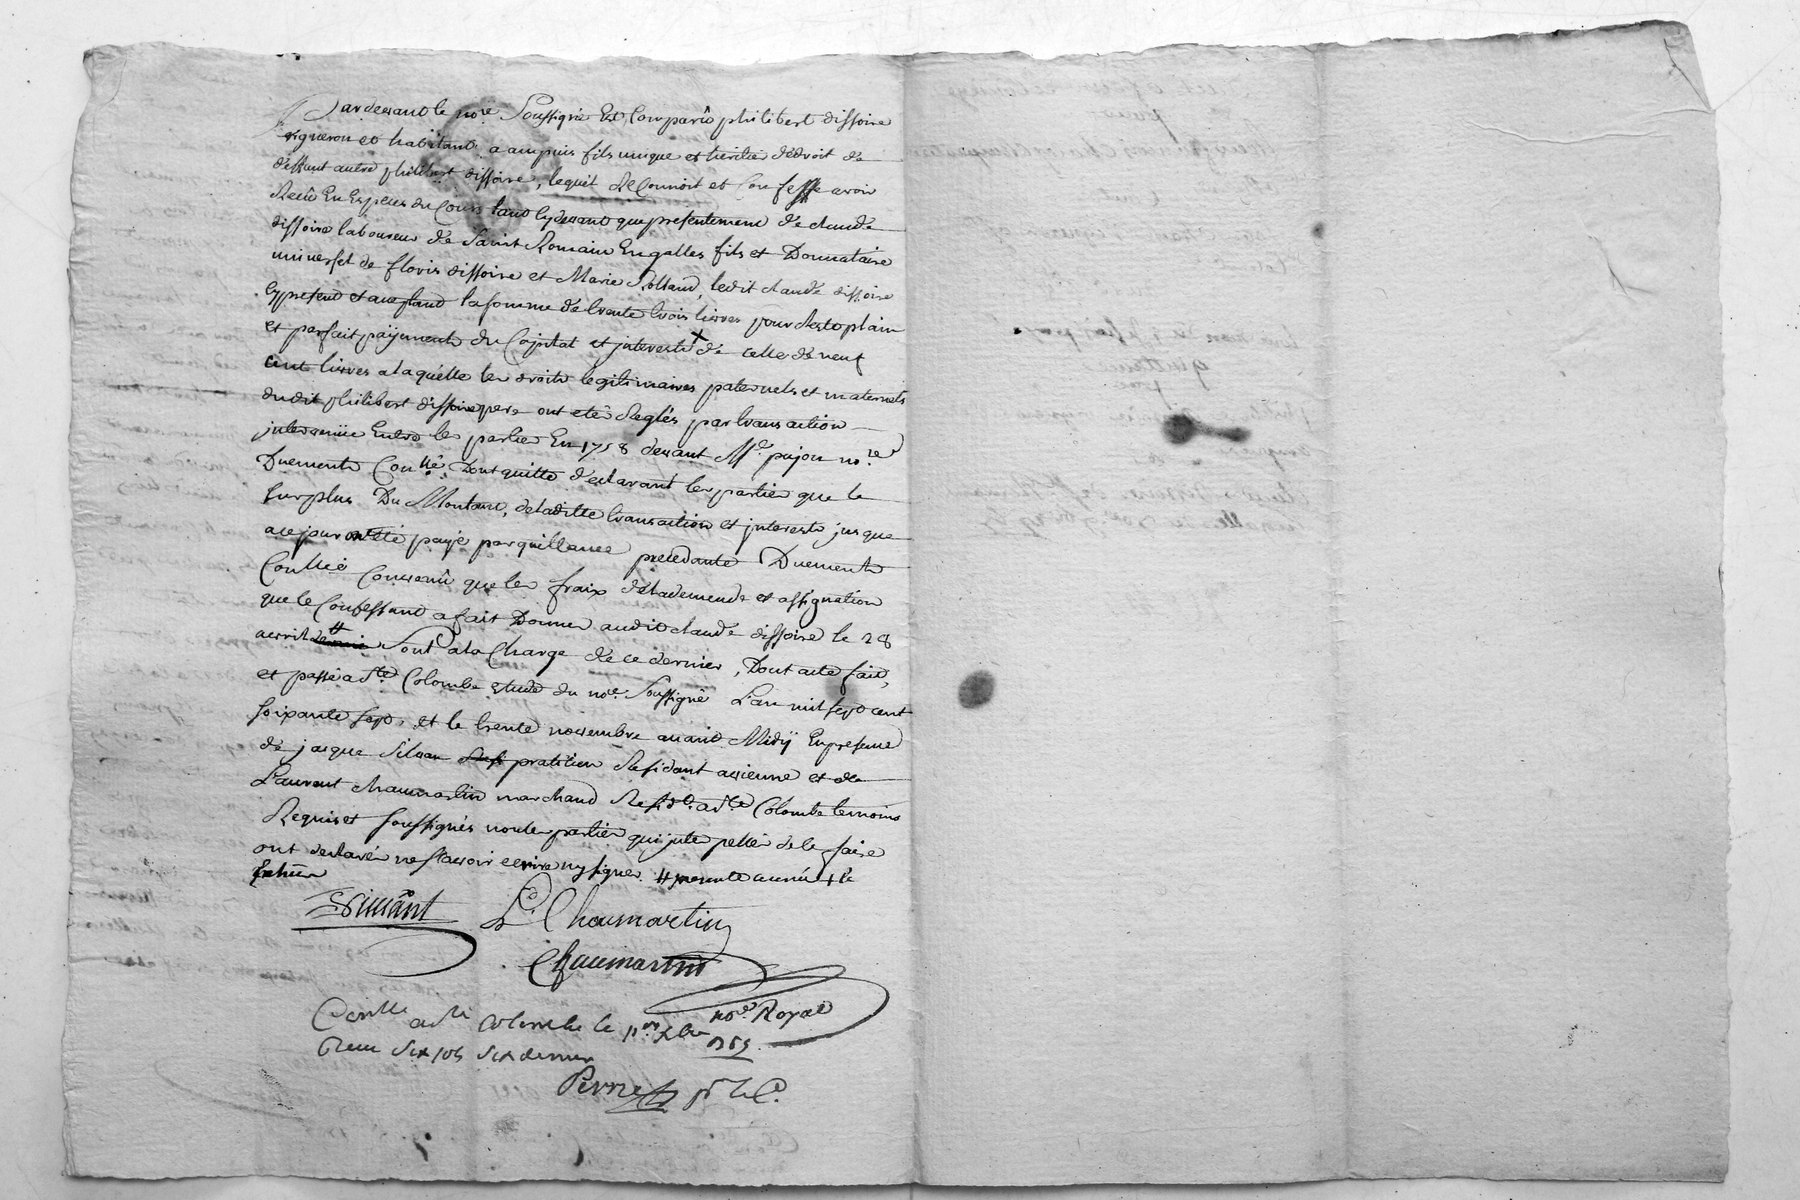 Pardevant le nore. Soussigné Est Comparu philibert dissoire
vigneron et habitant a ampuis fils unique et heritié dédroit de
déffunt autre philibert dissoire, lequel Reconnoit et Confesse avoir
Recû En Especes du Cours tant cydevant que presentement de claude
dissoire laboureur de Saint Romain Engalles fils et Donnataire
universel de floris dissoire et Marie Rolland, ledit claude dissoire
cypresent et aceptant la somme de trente trois livres pour Resto plain
et parfait païjement du Capital et jnterests de celle de neuf
cent livres alaquélle les droits legitimaires paternels et maternels
dudit philibert dissoire pere ont eté Reglés par transaction
jntervenüe Entre les parties En 1758 devant Me. pujon nore.
Duement Conllé Dont quitte declarant les parties que le
surplus Du Montant, deladitte transaction et jnterests jusque
acejour ont été payé par quittance precedante Duement
Conllée Convenû que les fraix deladémende et assignation
que le Confessant a fait Donner audit claude dissoire le 28
avril dernier Sont ala Charge de ce dernier, Dont acte fait,
et passé a Ste. Colombe etude du nore. Soussigné L'an mil sept cent
soixante sept, et le trente novembre avant Midÿ En presence
de jacque Silvan praticien Residant avienne et de
Laurent chaumartin marchand Resdt. a Ste Colombe temoins
Requis et soussignés non les parties qui jnterpellés de le faire
ont declarés ne scavoir ecrire ny signer. # presente année
L. Chaumartin
Chaumartin
nore. Royal
a Ste Colombe le
Recu Six sols Six deniers